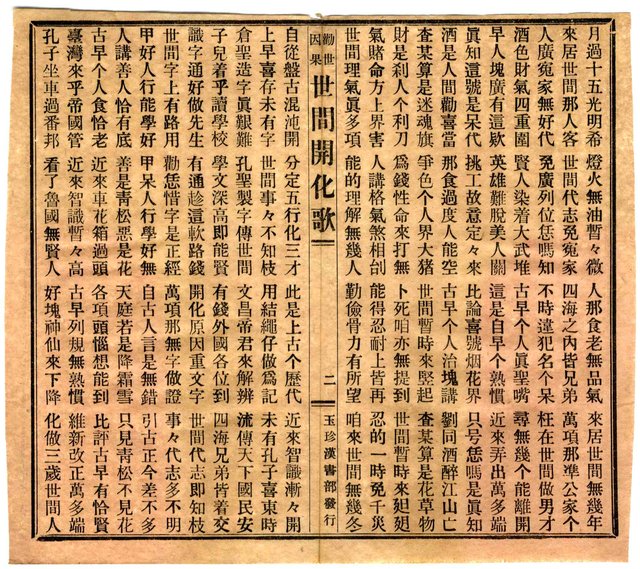 月過十五光明希 燈火無油暫々微 人那食老無品氣 來居世間無幾年
來居世間那人客 世間代志免冤家 四海之內皆兄弟 萬項那準公家个
人廣冤家無好代 免廣列位恁嗎知 不時違犯名个呆 枉在世間做男才
酒色財氣四重圍 賢人染着大武堆 古早个人眞聖嘴 尋無幾个能離開
早人塊廣有這欵 英雄難脫美人關 這是自早个熟慣 近來弄出萬多端
眞知這號是呆代 挑工故意定々來 比論喜號烟花界 只号恁嗎是眞知
酒是人間勸喜當 那食過度人能空 古早个人治塊講 劉同酒醉江山亡
査某算是迷魂旗 爭色个人界大猪 世間暫時來竪起 査某算是花草物
財是刹人个利刀 爲錢性命來打無 卜死咱亦無提到 世間暫時來廻廻
氣賭命方上界害 人講格氣煞相刣 能得忍耐上皆再 忍的一時免千災
世間理氣眞多項 能的理解無幾人 勤儉骨力有所望 咱來世間無幾冬
勸世因果 世間開化歌 二 玉珍漢書部發行
自從盤古混沌開 分定五行化三才 此是上古个歷代 近來智識漸々開
上早喜存未有字 世間事々不知枝 用結繩仔做爲記 未有孔子喜東時
倉聖造字眞艱難 孔聖製字傳世間 文昌帝君來解辨 流傳天下國民安
子兒着乎讀學校 學文深高即能賢 有錢外國各位到 四海兄弟皆着交
識字通好做先生 有通趁這軟路錢 開化原因重文字 世間代志即知枝
世間字上有路用 勸恁惜字是正經 萬項那無字做證 事々代志多不明
甲好人行能學好 甲呆人行學好無 自古人言是無錯 引古正今差不多
人講善人恰有底 善是靑松惡是花 天庭若是降霜雪 只見靑松不見花
古早个人食恰老 近來車花箱過頭 各項頭惱想能到 比評古早有恰賢
臺灣來乎帝國管 近來智識暫々高 古早列規無熟慣 維新改正萬多端
孔子坐車過番邦 看了魯國無賢人 好塊神仙來下降 化做三歲世間人